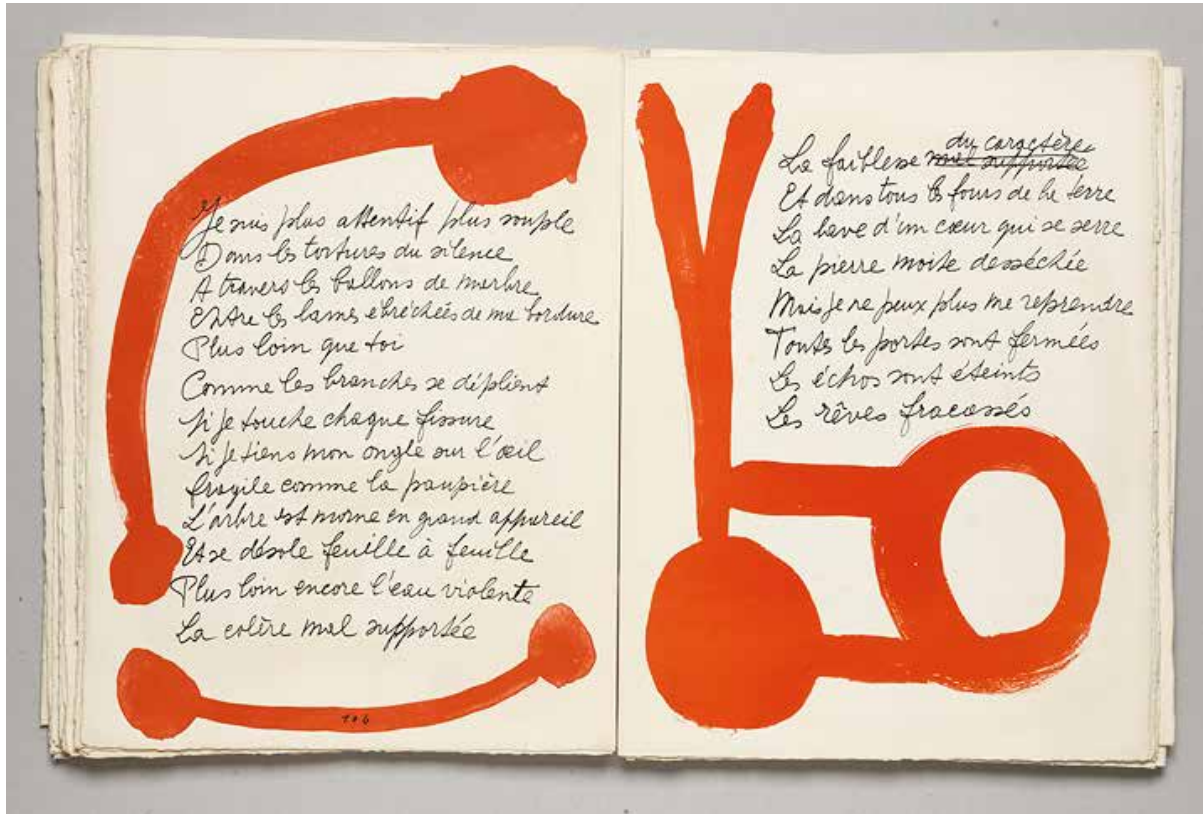 Je suis plus attentif plus souple
Dans les tortures du silence
A travers les ballons de marbre
Entre les lames ébréchées de ma bordure
Plus loin que toi
Comme les branches se déplient
Si je touche chaque fissure
Si je tiens mon ongle sur l'œil
fragile comme la paupière
L'arbre est morne en grand appareil
Et se désole feuille à feuille
Plus loin encore l'eau violente
La colère mal supportée
106
du caractère
La faiblesse mal supportée
Et dans tous les fours de la terre
La lave d'un cœur qui se serre
La pierre moite desséchée
Mais je ne peux plus me reprendre
Toutes les portes sont fermées
Les échos sont éteints
Les rêves fracassés